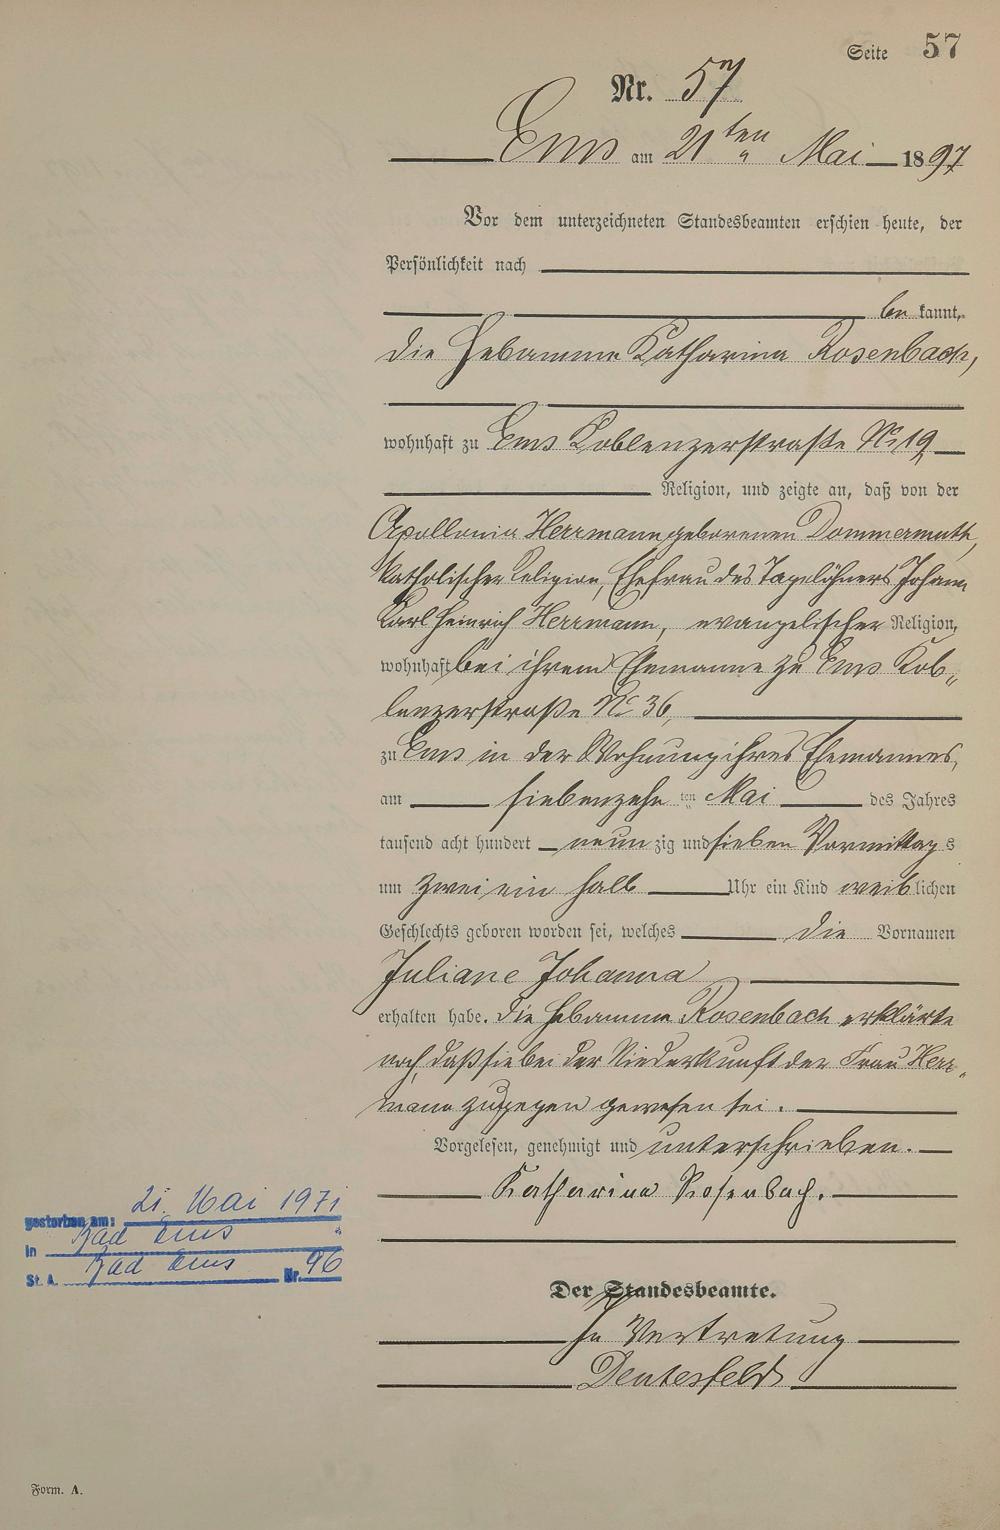 Seite 57
Nr. 57
Ems am 21ten Mai 1897
Vor dem unterzeichneten Standesbeamten erschien heute, der
Persönlichkeit nach
be kannt,
die Hebamme Katharina Rosenbach,
wohnhaft zu Ems Koblenzerstraße No 19
Religion, und zeigte an, daß von der
Apollonia Herrmann geborenen Dommermuth,
katholischer Religion, Ehefrau des Tagelöhners Johann
Karl Heinrich Herrmann, evangelischer Religion,
wohnhaft bei ihrem Ehemanne zu Ems Kob„
lenzerstraße No 36,
zu Ems in der Wohnung ihres Ehemannes,
am siebenzehn ten Mai des Jahres
tausend acht hundert neun zig und sieben Vormittag s
um zwei ein halb Uhr ein Kind weib lichen
Geschlechts geboren worden sei, welches die Vornamen
Juliane Johanna
erhalten habe. Die Hebamme Rosenbach erklärte
noch, daß sie bei der Niederkunft der Frau Herr„
mann zugegen gewesen sei.
Vorgelesen, genehmigt und unterschrieben.
Katharina Rosenbach.
Der Standesbeamte.
In Vertretung
Deutesfeld
gestorben am: 21. Mai 1971
in Bad Ems
St. A. Bad Ems Nr. 96
Form. A.